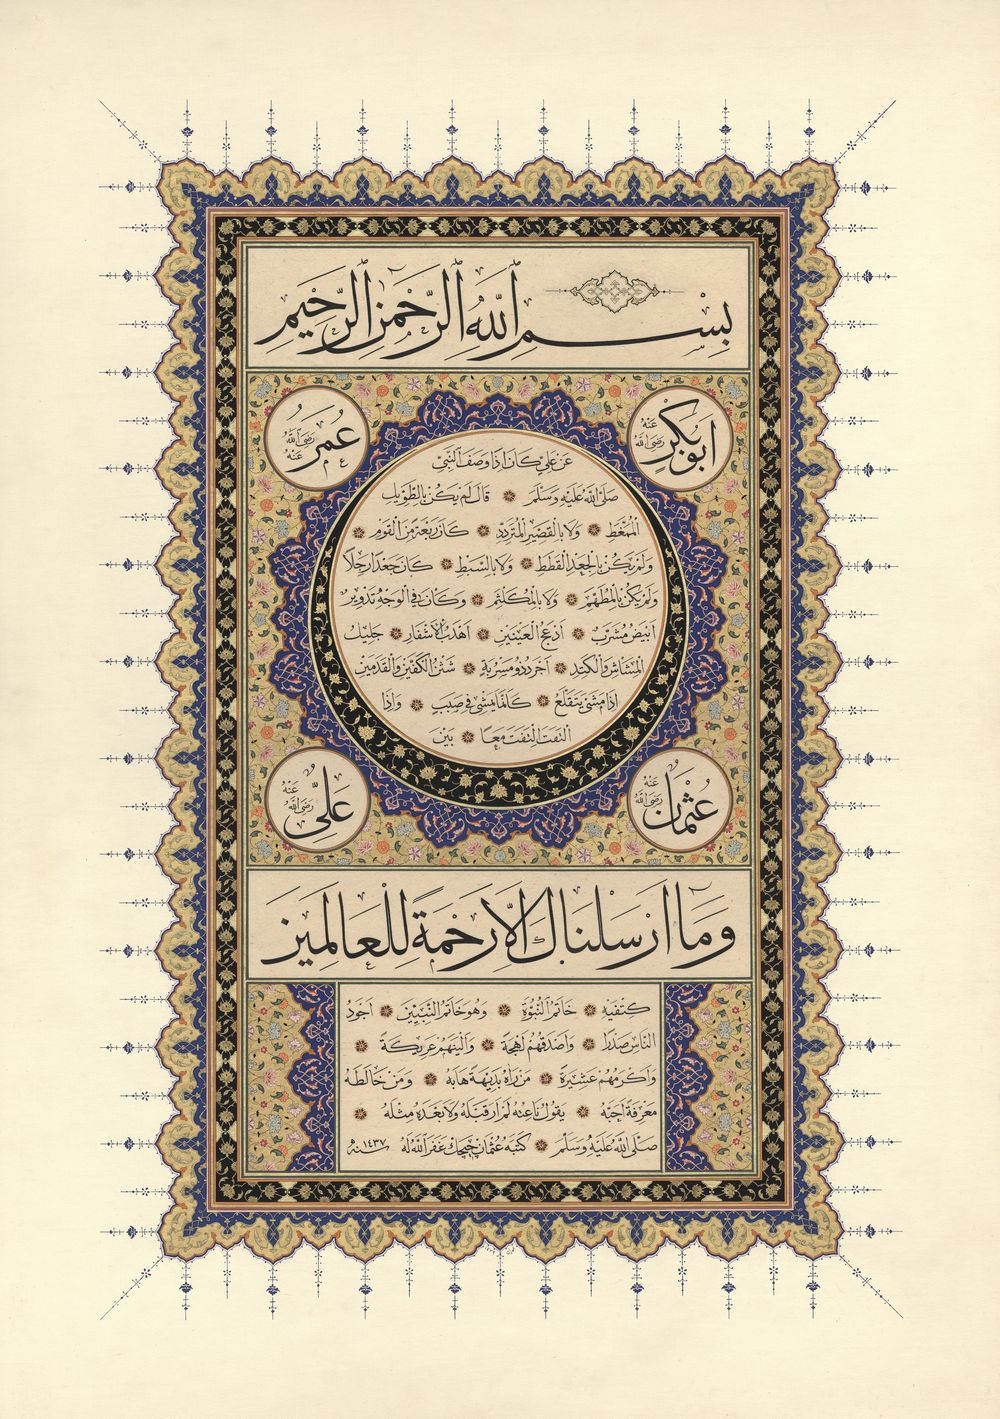 بِسْمِ ٱللّٰهِ ٱلرَّحْمٰنِ ٱلرَّحِيمِ
اَبُوبَكْرٍ رَضِىَ اللّٰهُ عَنْهُ
عُمَرُ رَضِىَ اللّٰهُ عَنْهُ
عَنْ عَلِيٍّ كَانَ اِذَا وَصَفَ النَّبِيَّ
صَلَّى اللّٰهُ عَلَيْهِ وَسَلَّمَ قَالَ لَمْ يَكُنْ بِالطَّوِيلِ
الْمُمَّغِطِ وَلَا بِالْقَصِيرِ الْمُتَرَدِّدِ كَانَ رَبْعَةً مِنَ الْقَوْمِ
وَلَمْ يَكُنْ بِالْجَعْدِ الْقَطَطِ وَلَا بِالسَّبْطِ كَانَ جَعْدًا رَجِلًا
وَلَمْ يَكُنْ بِالْمُطَهَّمِ وَلَا بِالْمُكَلْثَمِ وَكَانَ فِي الْوَجْهِ تَدْوِيرٌ
اَبْيَضُ مُشْرَبٌ اَدْعَجُ الْعَيْنَيْنِ اَهْدَبُ الْاَشْفَارِ جَلِيلُ
الْمُشَاشِ وَالْكَتَدِ اَجْرَدُ ذُو مَسْرُبَةٍ شَثْنُ الْكَفَّيْنِ وَالْقَدَمَيْنِ
اِذَا مَشٰى يَتَقَلَّعُ كَاَنَّمَا يَمْشِي فِي صَبَبٍ وَاِذَا
الْتَفَتَ الْتَفَتَ مَعًا بَيْنَ
عُثْمَانُ رَضِىَ اللّٰهُ عَنْهُ
عَلِيٌّ رَضِىَ اللّٰهُ عَنْهُ
وَمَا اَرْسَلْنَاكَ اِلَّا رَحْمَةً لِلْعَالَمِينَ
كَتِفَيْهِ خَاتَمُ النُّبُوَّةِ وَهُوَ خَاتَمُ النَّبِيِّينَ اَجْوَدُ
النَّاسِ صَدْرًا وَاَصْدَقُهُمْ لَهْجَةً وَاَلْيَنُهُمْ عَرِيكَةً
وَاَكْرَمُهُمْ عَشِيرَةً مَنْ رَاٰهُ بَدِيهَةً هَابَهُ وَمَنْ خَالَطَهُ
مَعْرِفَةً اَحَبَّهُ يَقُولُ نَاعِتُهُ لَمْ اَرَ قَبْلَهُ وَلَا بَعْدَهُ مِثْلَهُ
صَلَّى اللّٰهُ عَلَيْهِ وَسَلَّمَ كَتَبَهُ عُثْمَانُ چِيچَك غَفَرَ اللّٰهُ لَهُ سنه ١٤٣٧